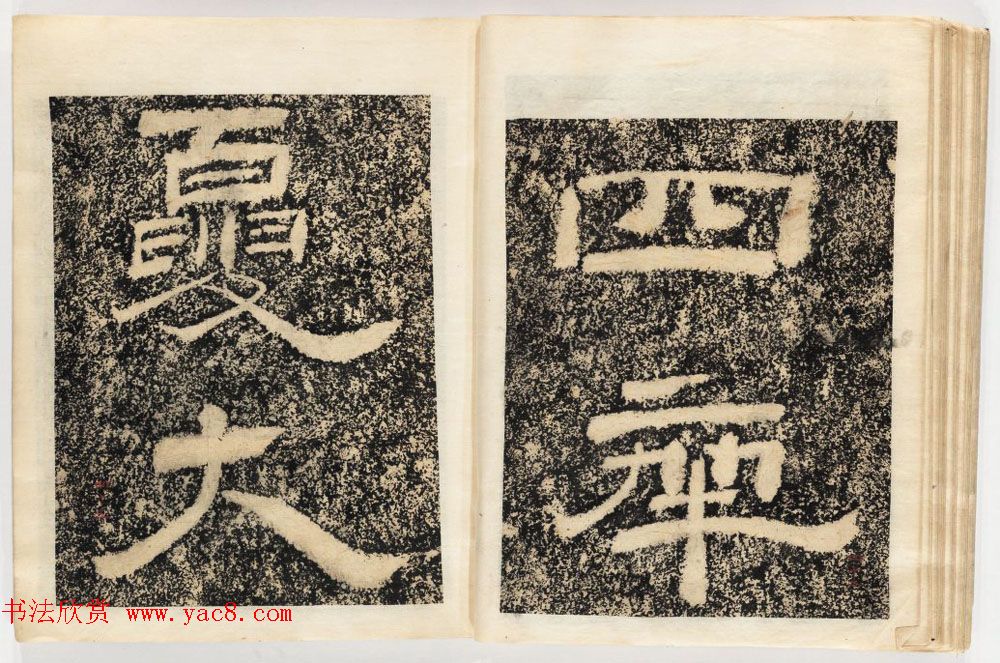 四
夏大
书法欣赏 www.yac8.com